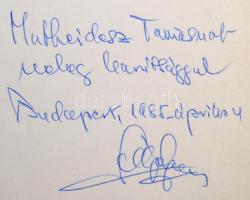 Mutheidesz Tamásnak
meleg barátsággal
Budapest, 1985. április 4